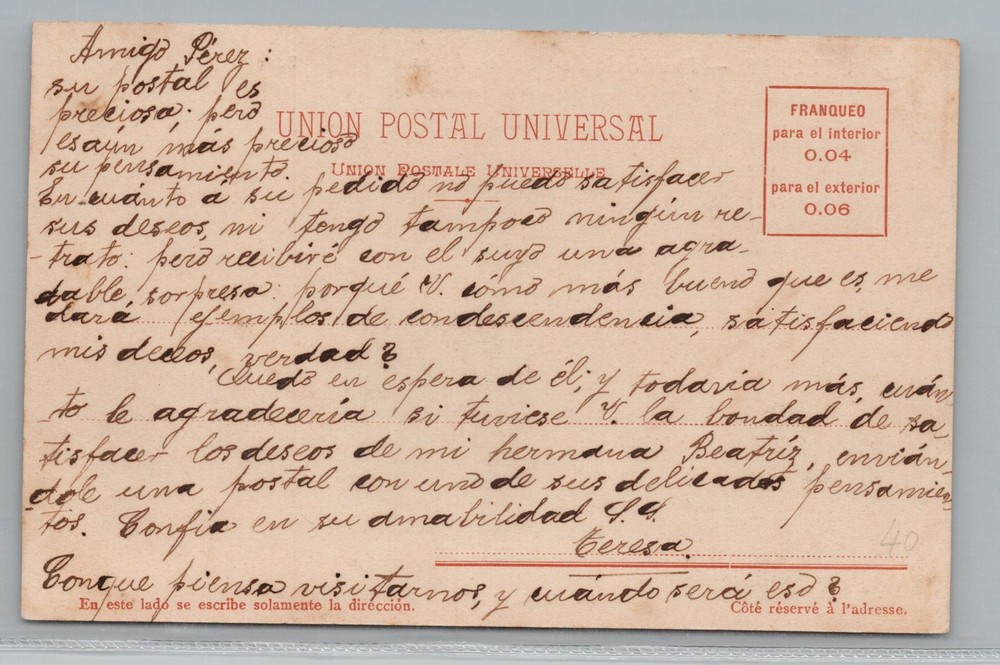 Amigo Pérez:
su postal es
preciosa: pero
es aún más precioso
su pensamiento.
UNION POSTAL UNIVERSAL
UNION POSTALE UNIVERSELLE
FRANQUEO
para el interior
0.04
para el exterior
0.06
En cuánto á su pedido no puedo satisfacer
sus deseos, ni tengo tampoco ningún re-
-trato: pero recibiré con el suyo una agra-
dable sorpresa: porqué V. cómo más bueno que es, me
dará ejemplos de condescendencia, satisfaciendo
mis deceos, verdad?
Quedo en espera de él; y todavia más, cuán-
to le agradecería si tuviese V. la bondad de sa-
tisfacer los deseos de mi hermana Beatríz, envián-
dole una postal con uno de sus delicados pensamien-
tos. Confia en su amabilidad S.S.
Teresa.
40
Conque piensa visitarnos, y cuándo será eso?
En este lado se escribe solamente la dirección.
Côté réservé à l'adresse.